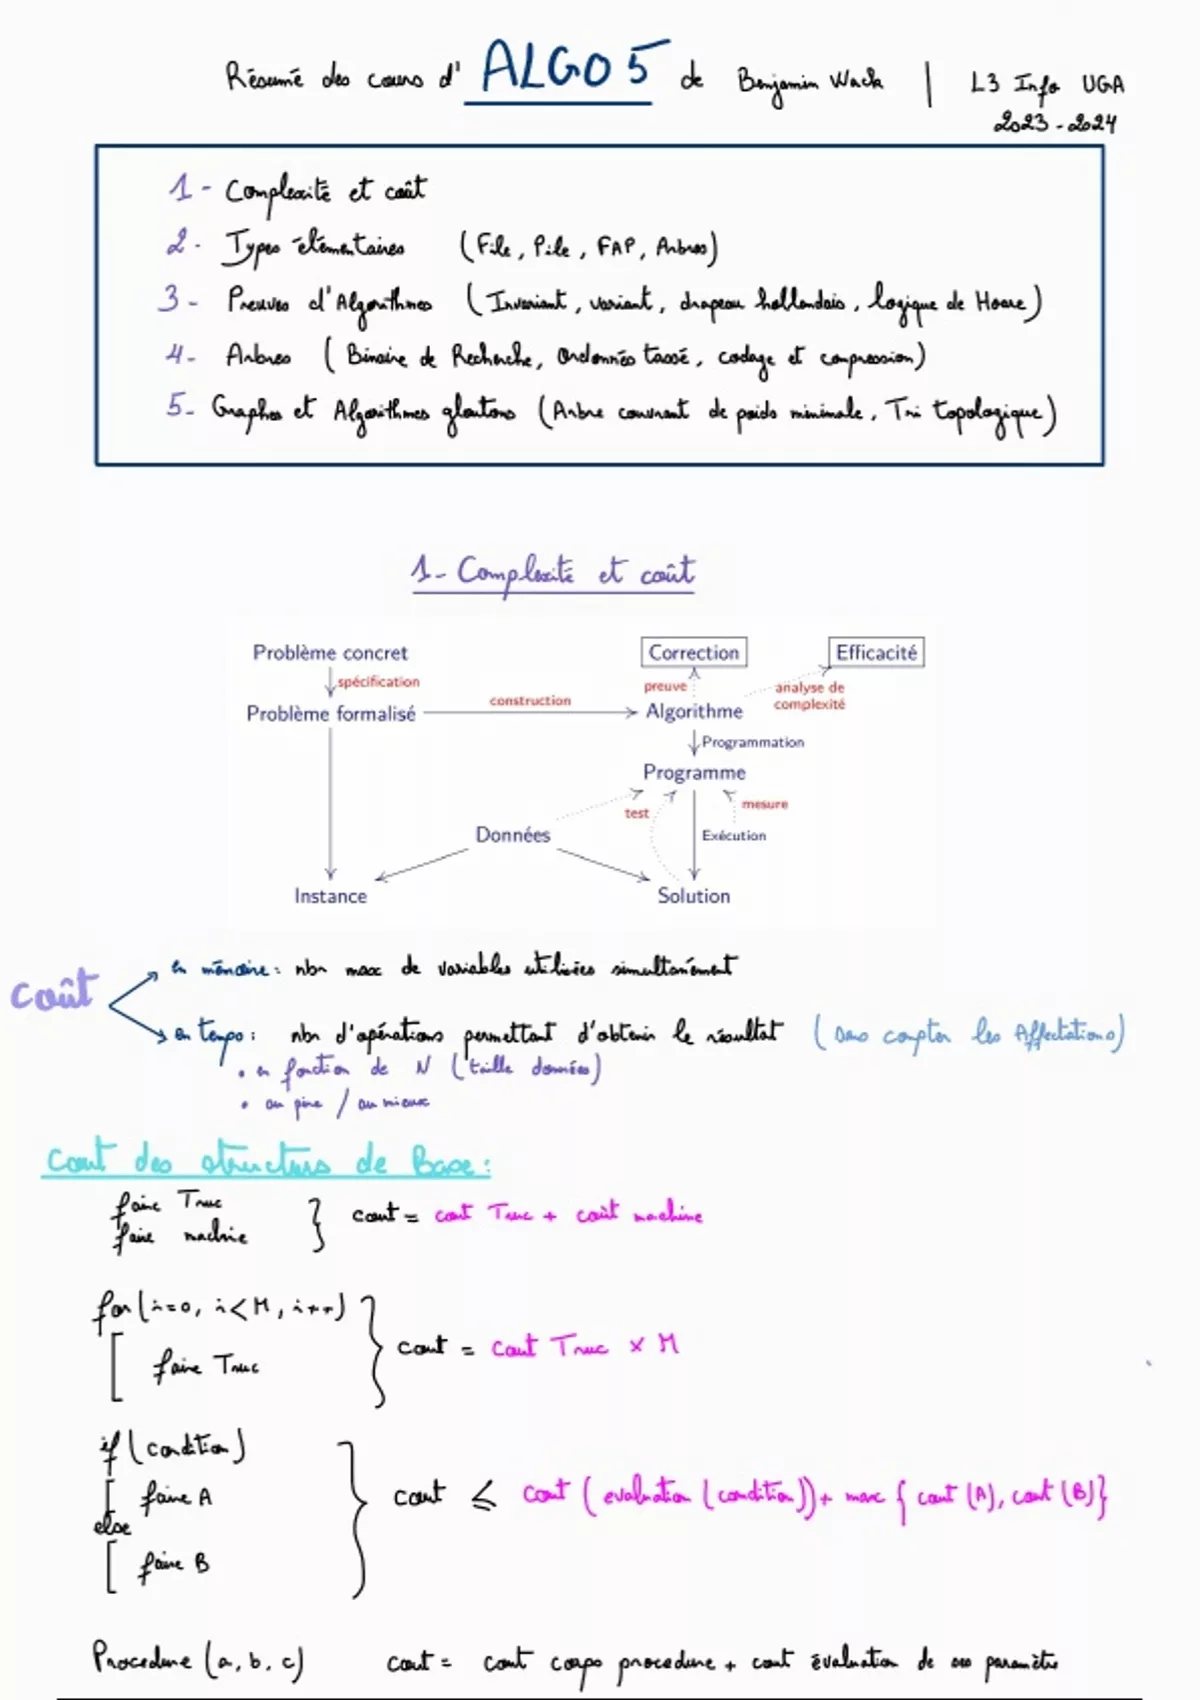 Résumé des cours d' ALGO 5 de Benjamin Wack | L3 Info UGA
2023-2024
1- Complexité et coût
2- Types élémentaires (File, Pile, FAP, Arbres)
3- Preuves d'Algorithmes (Invariant, variant, drapeau hollandais, logique de Hoare)
4- Arbres (Binaire de Recherche, Ordonnés tassé, codage et compression)
5- Graphes et Algorithmes gloutons (Arbre couvrant de poids minimale, Tri topologique)
1- Complexité et coût
Problème concret
Correction
Efficacité
spécification
preuve
analyse de
complexité
construction
Problème formalisé
Algorithme
Programmation
Programme
test
mesure
Données
Exécution
Instance
Solution
coût
en mémoire : nbr max de variables utilisées simultanément
en temps : nbr d'opérations permettant d'obtenir le résultat (sans compter les Affectations)
• en fonction de N (taille données)
• au pire / au mieux
Cout des structurs de Base :
faire Truc
faire machine
} cout = cout Truc + coût machine
for (i=0, i<M, i++)
[ faire Truc
} cout = Cout Truc x M
if (condition)
[ faire A
else
[ faire B
} cout ≤ cout (evaluation (condition)) + max { cout (A), cout (B)}
Procedure (a, b, c) cout = cout corps procedure + cout évaluation de ses paramètrs